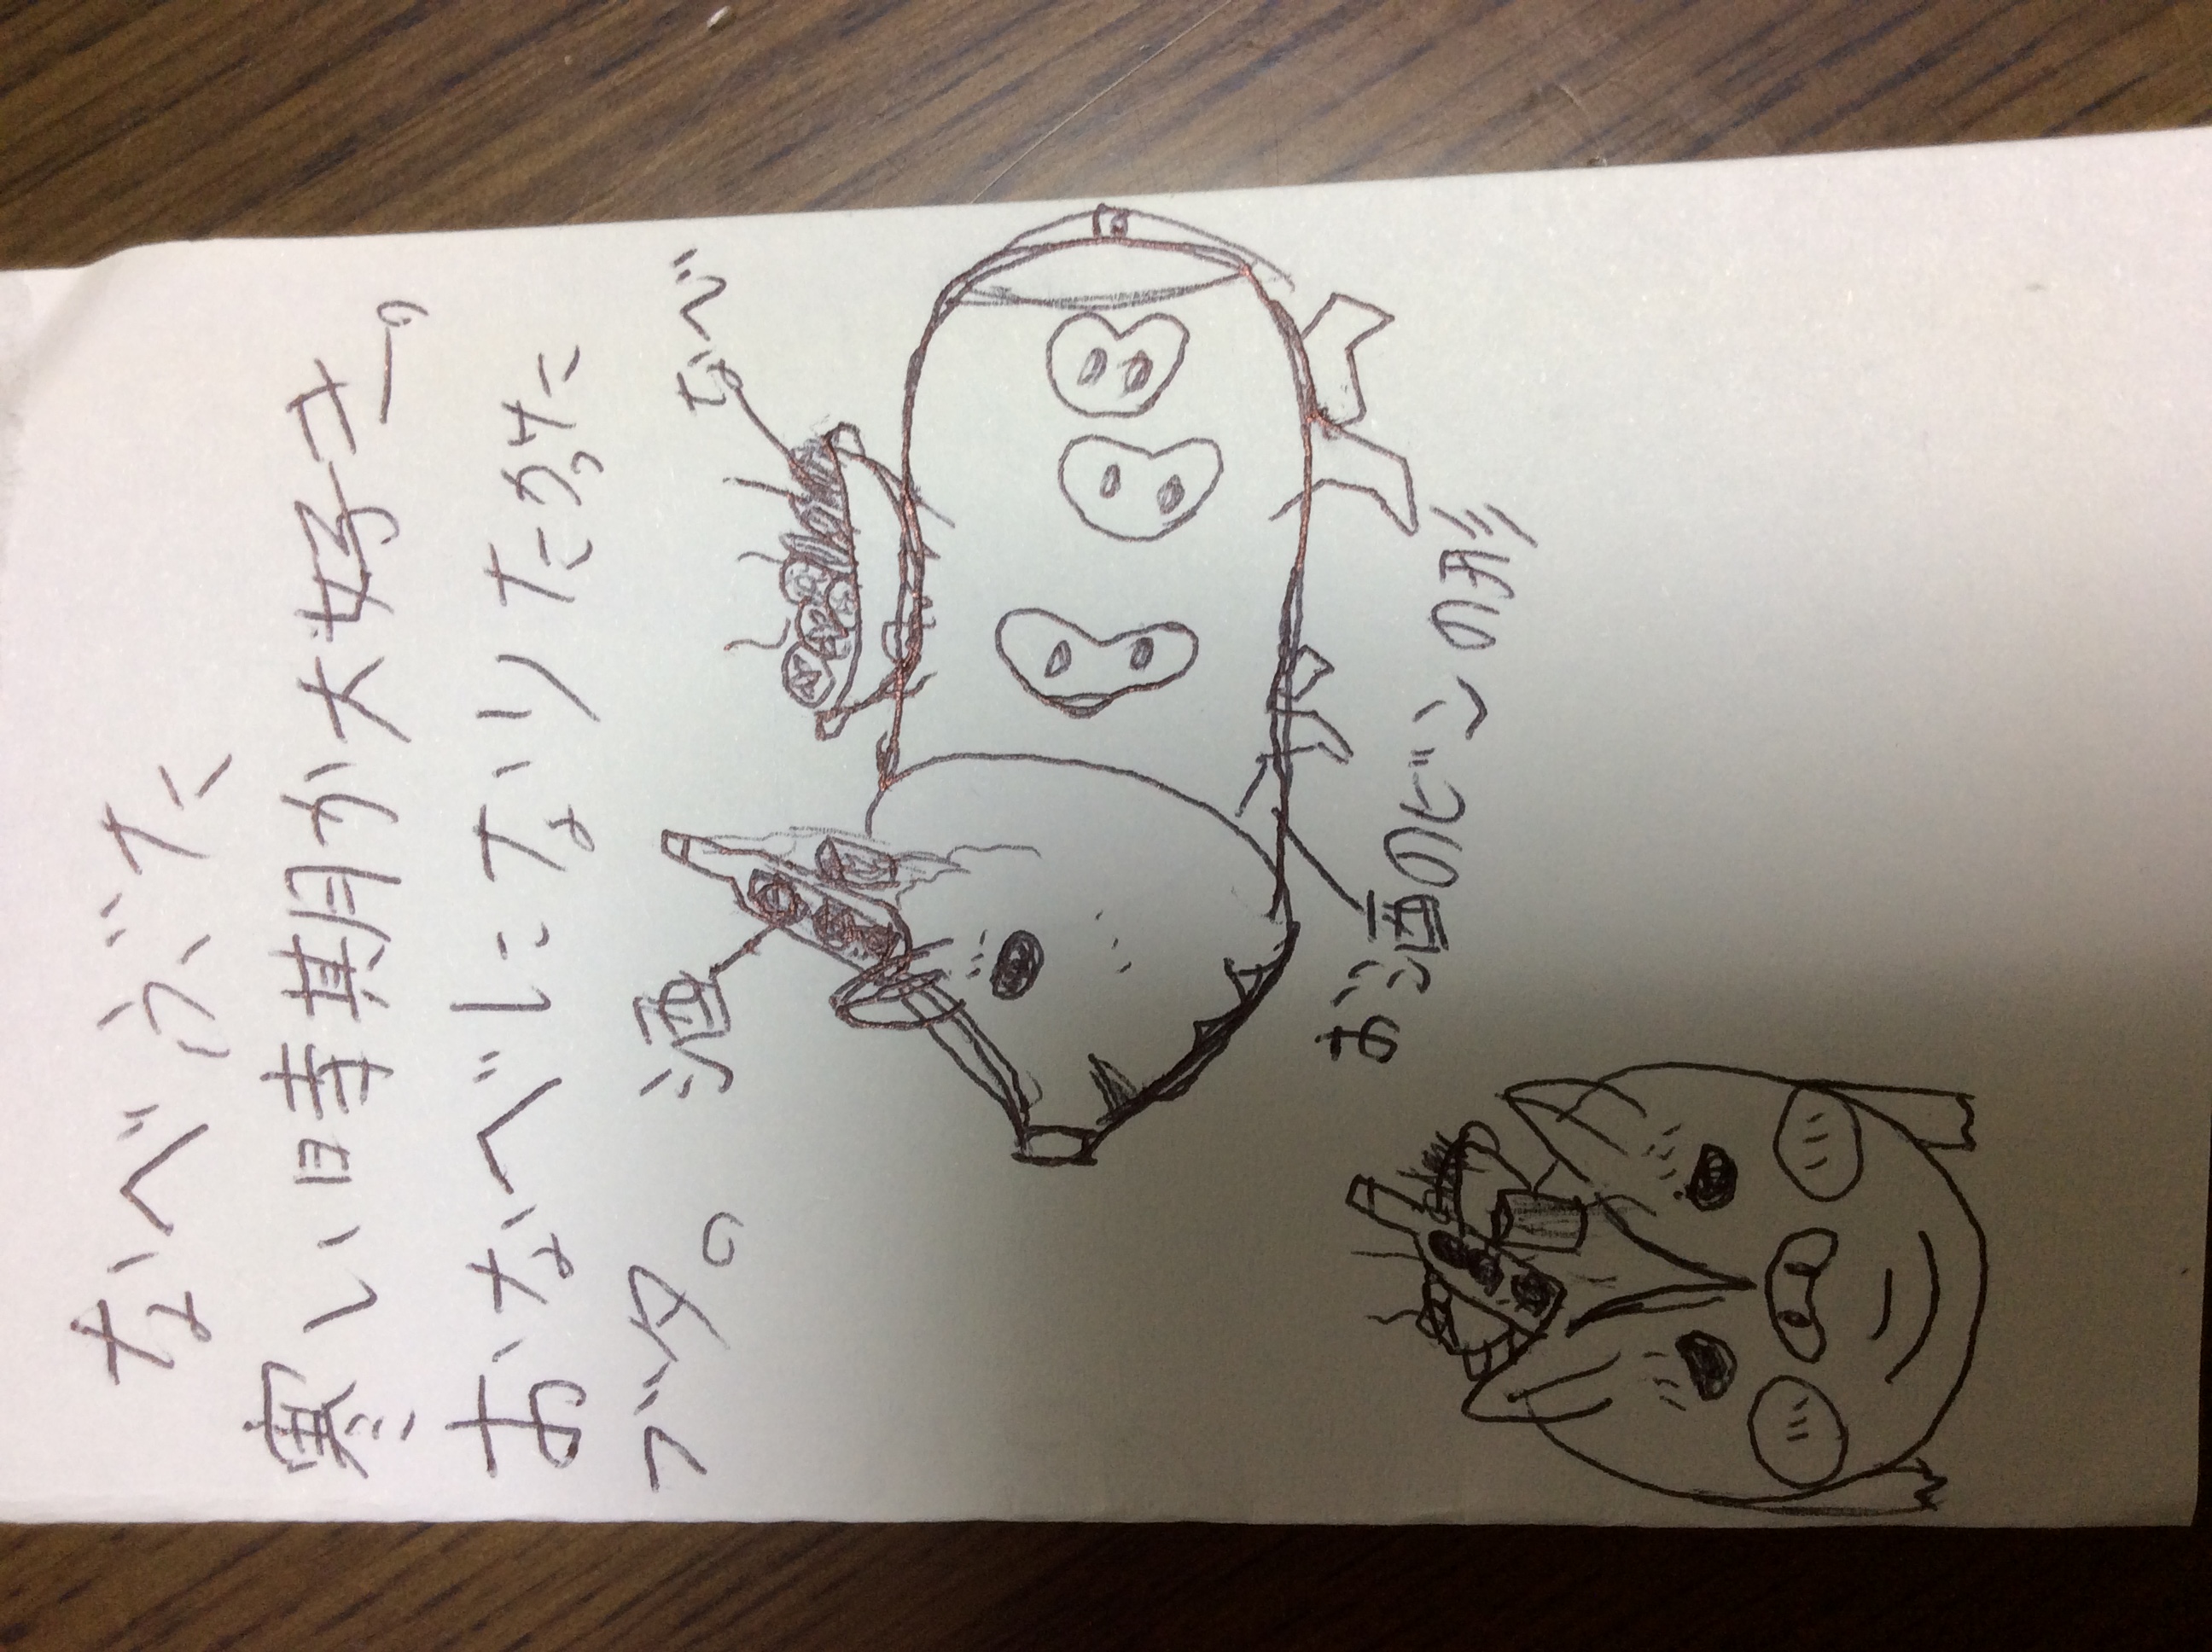 なべぶた
寒い時期が大好き。
おなべになりたかった
ブタ。
酒
なべ
お酒のビンの形